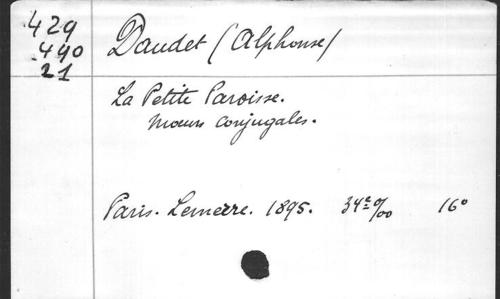 429
490
21
Daudet (Alphonse)
La Petite Paroisse.
Mœurs conjugales.
Paris. Lemerre. 1895. 34e 16°